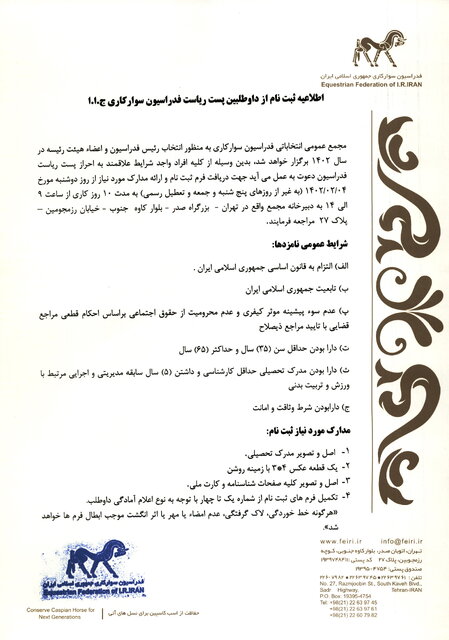 فدراسیون سوارکاری جمهوری اسلامی ایران
Equestrian Federation of I.R.IRAN
اطلاعیه ثبت نام از داوطلبین پست ریاست فدراسیون سوارکاری ج.ا.ا
مجمع عمومی انتخاباتی فدراسیون سوارکاری به منظور انتخاب رئیس فدراسیون و اعضاء هیئت رئیسه در
سال ۱۴۰۲ برگزار خواهد شد، بدین وسیله از کلیه افراد واجد شرایط علاقمند به احراز پست ریاست
فدراسیون دعوت به عمل می آید جهت دریافت فرم ثبت نام و ارائه مدارک مورد نیاز از روز دوشنبه مورخ
۱۴۰۲/۰۲/۰۴ (به غیر از روزهای پنج شنبه و جمعه و تعطیل رسمی) به مدت ۱۰ روز کاری از ساعت ۹
الی ۱۴ به دبیرخانه مجمع واقع در تهران - بزرگراه صدر - بلوار کاوه جنوب - خیابان رزمجومین -
پلاک ۲۷ مراجعه فرمایند.
شرایط عمومی نامزدها:
الف) التزام به قانون اساسی جمهوری اسلامی ایران .
ب) تابعیت جمهوری اسلامی ایران
پ) عدم سوء پیشینه موثر کیفری و عدم محرومیت از حقوق اجتماعی براساس احکام قطعی مراجع
قضایی با تایید مراجع ذیصلاح
ت) دارا بودن حداقل سن (۳۵) سال و حداکثر (۶۵) سال
ث) دارا بودن مدرک تحصیلی حداقل کارشناسی و داشتن (۵) سال سابقه مدیریتی و اجرایی مرتبط با
ورزش و تربیت بدنی
ج) دارابودن شرط وثاقت و امانت
مدارک مورد نیاز ثبت نام:
۱- اصل و تصویر مدرک تحصیلی.
۲- یک قطعه عکس ۴*۳ با زمینه روشن
۳- اصل و تصویر کلیه صفحات شناسنامه و کارت ملی.
۴- تکمیل فرم های ثبت نام از شماره یک تا چهار با توجه به نوع اعلام آمادگی داوطلب.
«هرگونه خط خوردگی، لاک گرفتگی، عدم امضاء یا مهر یا اثر انگشت موجب ابطال فرم ها خواهد
شد».
www.feiri.ir info@feiri.ir
تهران، اتوبان صدر، بلوار کاوه جنوبی، کوچه
رزمجویین، پلاک ۲۷
No. 27, Razmjoobin St., South Kaveh Blvd.,
Sadr Highway, Tehran-IRAN
P.O. Box: 19395-4754
Tel: +98(21) 22 63 97 45
+98(21) 22 63 97 61
+98(21) 22 60 79 82
Equestrian Federation of I.R.IRAN
فدراسیون سوارکاری جمهوری اسلامی ایران
Conserve Caspian Horse for
Next Generations
حفاظت از اسب کاسپین برای نسل های آتی